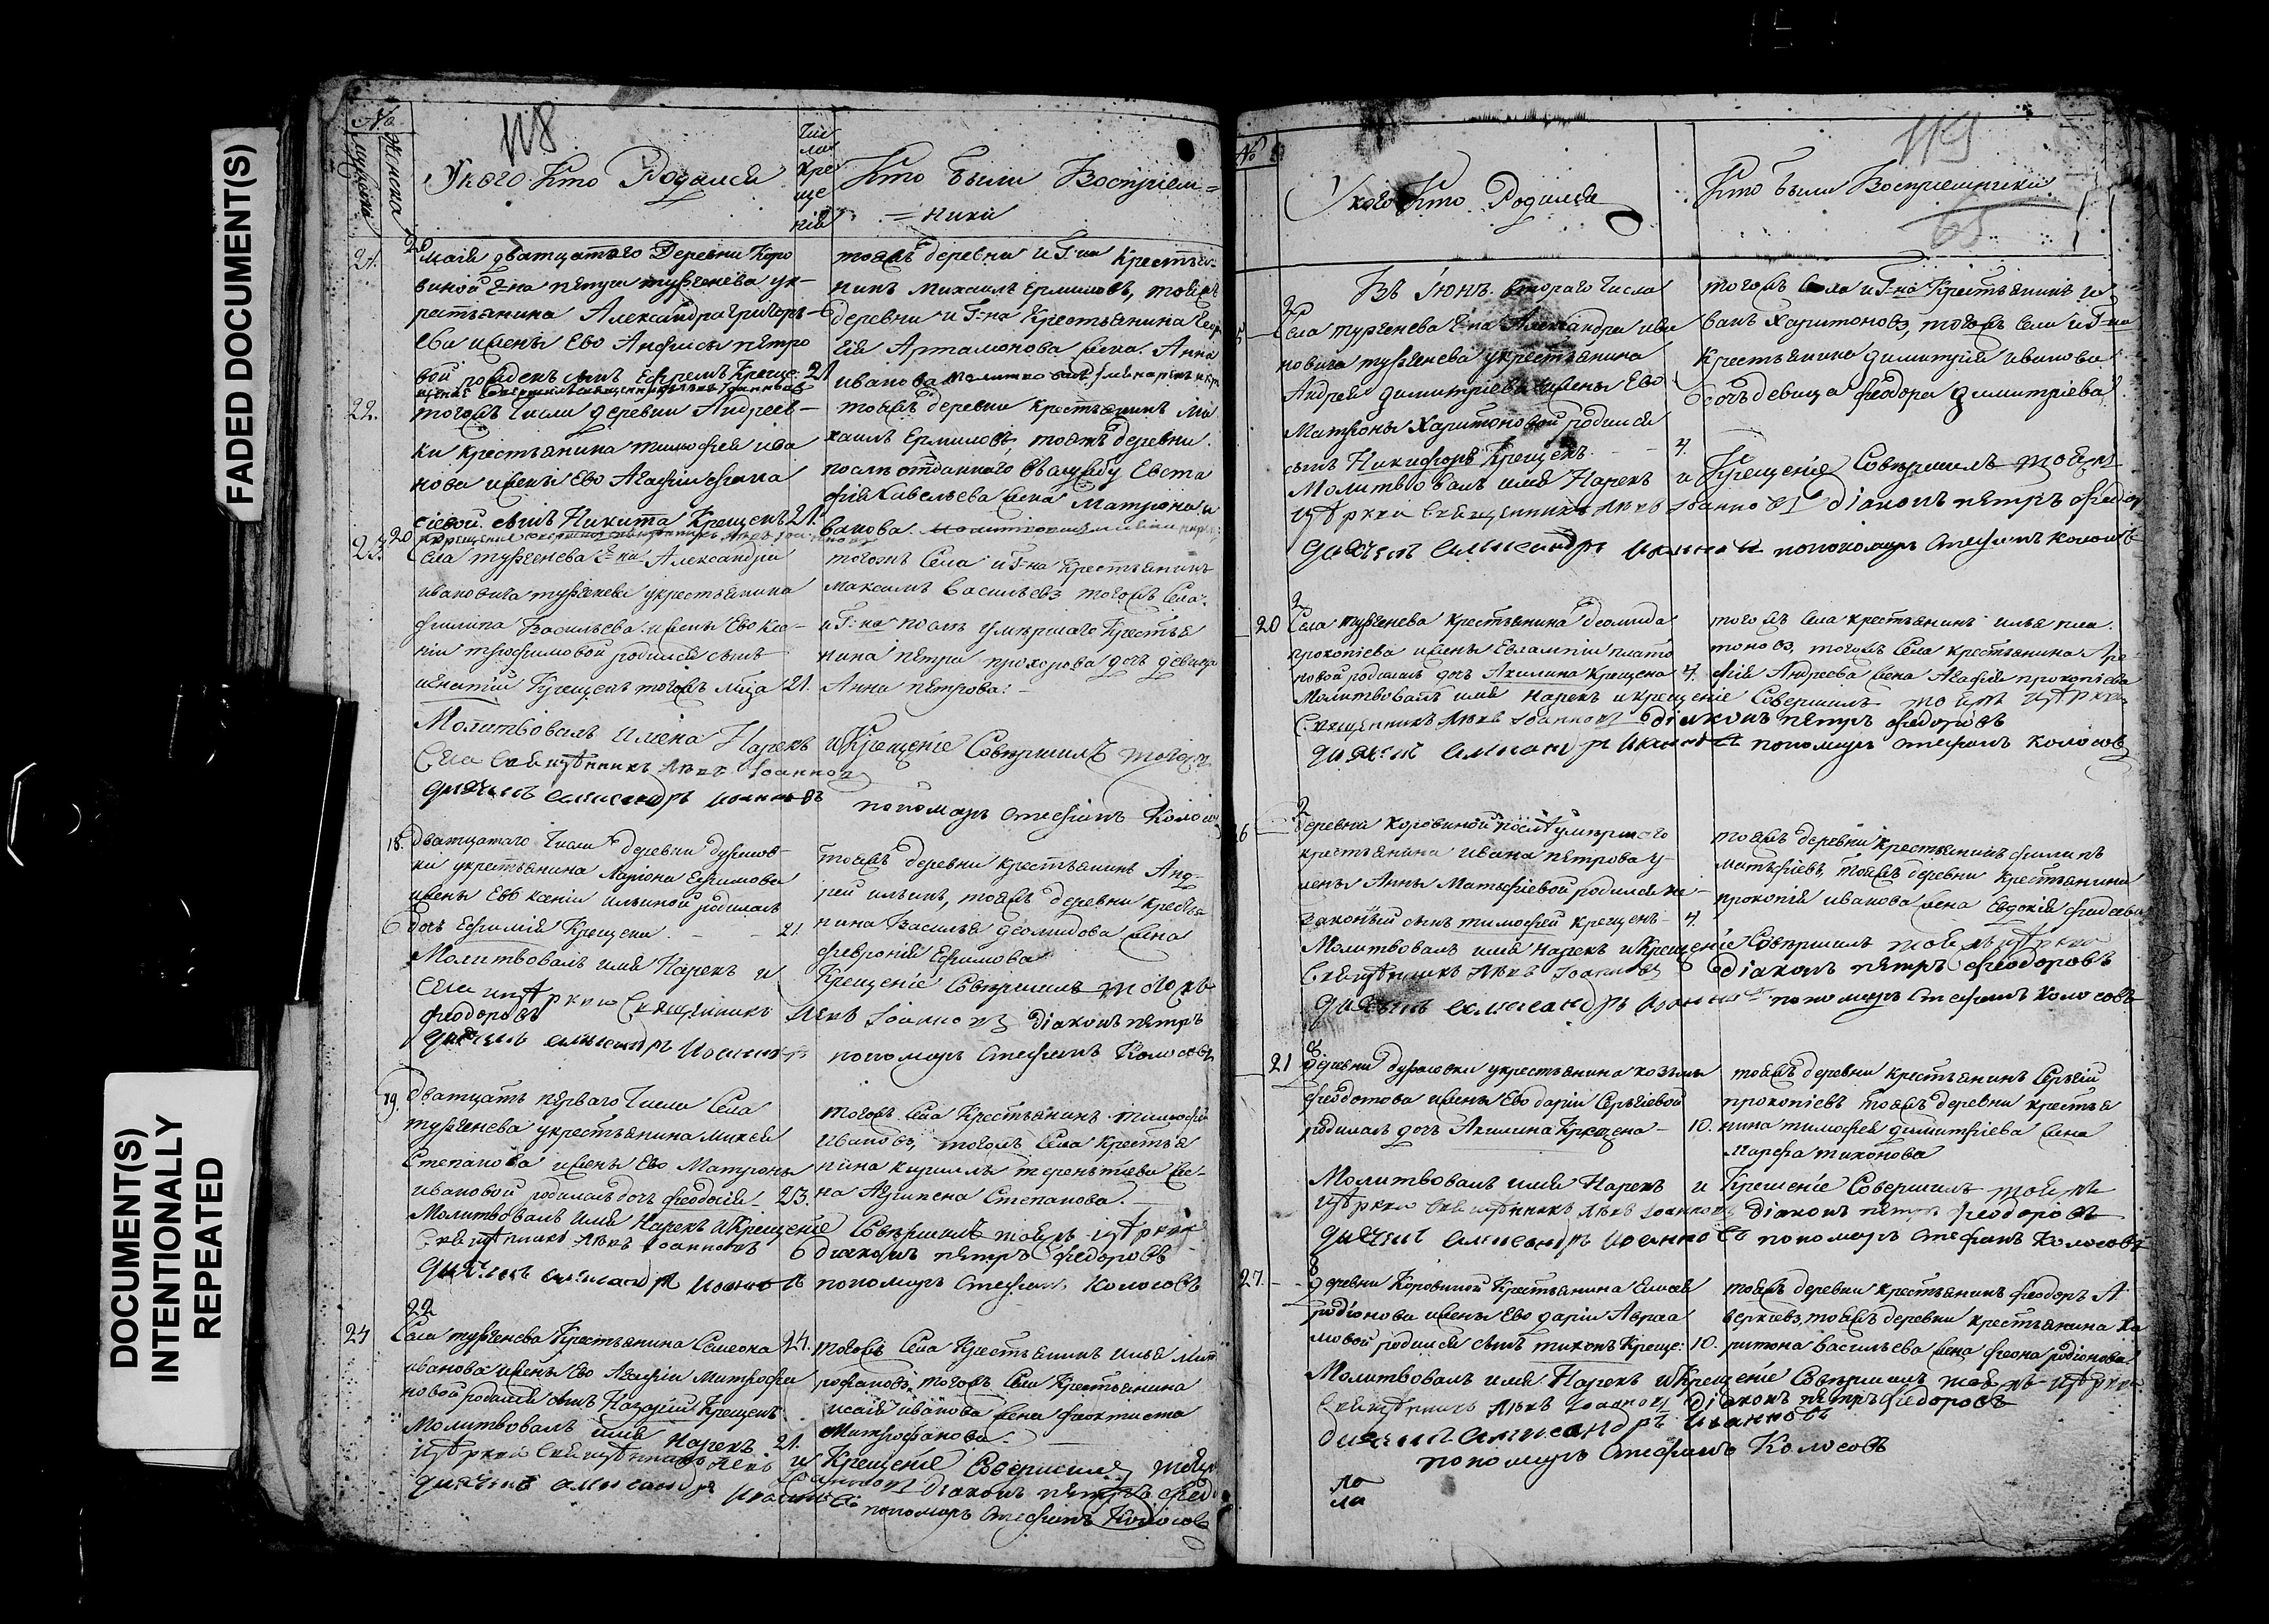 FADED DOCUMENT(S)
DOCUMENT(S)
INTENTIONALLY
REPEATED
№
мужска
женска
118
У кого кто Родился
чи
сла
кре
ще
нія
Кто были Восприем=
=ники
21. 20 маія дватцатого Деревни Коро
виной Г-на петра тургенева у кр
естьянина Александра григорь
ева жены ево Анфисы петро
вой рожденъ сынъ Ефремъ Креще: 21
тояжъ деревни и Г-на крестья
нинъ Михаилъ Ермиловъ, тояжъ
деревни и Г-на Крестьянина
Артамонова жена Анна
иванова
22. тогожъ числа деревни Андреев-
ки крестьянина тимофея ива
нова жены ево Агафіи афана
сіевой сынъ Никита Крещенъ 21.
тояжъ деревни крестьянинъ ми
хаилъ Ермиловъ, тояжъ деревни
после отданного въ службу Евста
фія Савельева жена Матрона и
ванова
23. 20 Села тургенева Г-на Александра
ивановича тургенева у крестьянина
филипа Васильева жены Ево ксе-
ніи трофимовой родился сынъ
игнатій Крещенъ тогожъ мца 21.
тогожъ Села и Г-на Крестьянинъ
максимъ Васильевъ тогожъ Села
и Г-на послѣ умершаго Крестья
нина петра прохорова дочь девица
Анна петрова:
Молитвовалъ имена Нарекъ и Крещеніе Совершилъ тогожъ
Села Священникъ Левъ Іоанновъ
дьячекъ александръ иоанновъ пономарь стефанъ Колосовъ
18. дватцатого числа деревни дурасов-
ки у крестьянина лариона Ефимова
жены Ево ксеніи ильиной родилась
дочь Ефимія Крещена 21.
тояжъ деревни крестьянинъ Анд-
рей ильинъ, тояжъ деревни крестья
нина Василья деомидова жена
февронія Ефимова
Молитвовалъ имя Нарекъ и Крещеніе Совершилъ тогожъ
Села церкви Священникъ Левъ Іоанновъ діаконъ петръ
феодоровъ
дьячекъ александръ иоанновъ пономарь стефанъ Колосовъ
19. дватцать перваго числа Села
тургенева у крестьянина
Степанова жены Ево Матроны
ивановой родилась дочь феодосія 23.
тогожъ Села Крестьянинъ тимофей
ивановъ, тогожъ Села крестья
нина кирилы терентіева же-
на Агрипена Степанова.
Молитвовалъ имя Нарекъ и Крещеніе Совершилъ тояжъ церкви
Священникъ Левъ Іоанновъ діаконъ петръ федоровъ
дьячекъ александръ иоанновъ пономарь стефанъ Колосовъ
22
24 Села тургенева Крестьянина Семиона 24.
иванова жены Ево Агафіи митрофа
новой родился сынъ Назарій Крещенъ
тогожъ Села Крестьянинъ илья мит
рофановъ, тогожъ Села Крестьянина
исаія иванова жена феоктиста
Митрофанова
Молитвовалъ имя Нарекъ 21. и Крещеніе Совершилъ тояжъ
церкви Священникъ Левъ Іоанновъ діаконъ петръ федо
дьячекъ александръ иоанновъ
пономарь стефанъ Колосовъ
№
119
65
У кого кто Родился
Кто были Восприемники
Въ Іюнѣ. втораго числа
2
Села тургенева Г-на Александра ива
новича тургенева у крестьянина
Андрея димитріева жены Ево
Матроны Харитоновой родился
сынъ Никифоръ Крещенъ 4.
тогожъ Села и Г-на Крестьянинъ и
ванъ Харитоновъ, тогожъ Села и Г-на
Крестьянина димитрія иванова
дочь девица феодора димитріева
Молитвовалъ имя Нарекъ и Крещеніе Совершилъ тояжъ
церкви Священникъ Левъ Іоанновъ діаконъ петръ федор
дьячекъ александръ иоанновъ пономарь стефанъ колосовъ
2
20 Села тургенева крестьянина деомида
прокопіева жены Евлампіи плато
новой родилась дочь Акилина Крещена 4.
тогожъ Села крестьянинъ илья пла
тоновъ, тогожъ Села крестьянина Аре
фія Андреева жена Агафія прокопіева
Молитвовалъ имя нарекъ и крещеніе Совершилъ тояжъ церкви
Священникъ Левъ Іоанновъ діаконъ петръ федоровъ
дьячекъ александръ иоанновъ пономарь стефанъ колосовъ
2
26 деревни коровиной послѣ умершаго
крестьянина ивана петрова у
жены Анны Матвѣевой родился не-
законный сынъ тимофей крещенъ 4.
тояжъ деревни крестьянинъ филипъ
матвѣевъ, тояжъ деревни Крестьянина
прокопія иванова жена Евдокія фадеева
Молитвовалъ имя нарекъ и Крещеніе Совершилъ тояжъ церкви
Священникъ Левъ Іоанновъ діаконъ петръ феодоровъ
дьячекъ александръ иоанновъ пономарь стефанъ Колосовъ
8
21 деревни дурасовки у крестьянина козьмы
федотова жены Ево даріи Сергіевой
родилась дочь Акилина Крещена 10.
тояжъ деревни крестьянинъ Сергій
прокопіевъ тояжъ деревни крестья
нина тимофея димитріева жена
Марфа тихонова
Молитвовалъ имя Нарекъ и Крещеніе Совершилъ тояжъ
церкви Священникъ Левъ Іоанновъ діаконъ петръ феодоровъ
дьячекъ александръ иоанновъ пономарь стефанъ Колосовъ
8
27. деревни Коровиной Крестьянина Елисея
родіонова жены Ево даріи Авраа
мовой родился сынъ тихонъ Креще: 10.
тояжъ деревни крестьянинъ феодоръ А
веркіевъ, тояжъ деревни крестьянина Ха
ритона Васильева жена феона родіонова
Молитвовалъ имя Нарекъ и Крещеніе Совершилъ тояжъ церкви
Священникъ Левъ Іоанновъ діаконъ петръ федоровъ
дьячекъ александръ иоанновъ
пономарь стефанъ Колосовъ